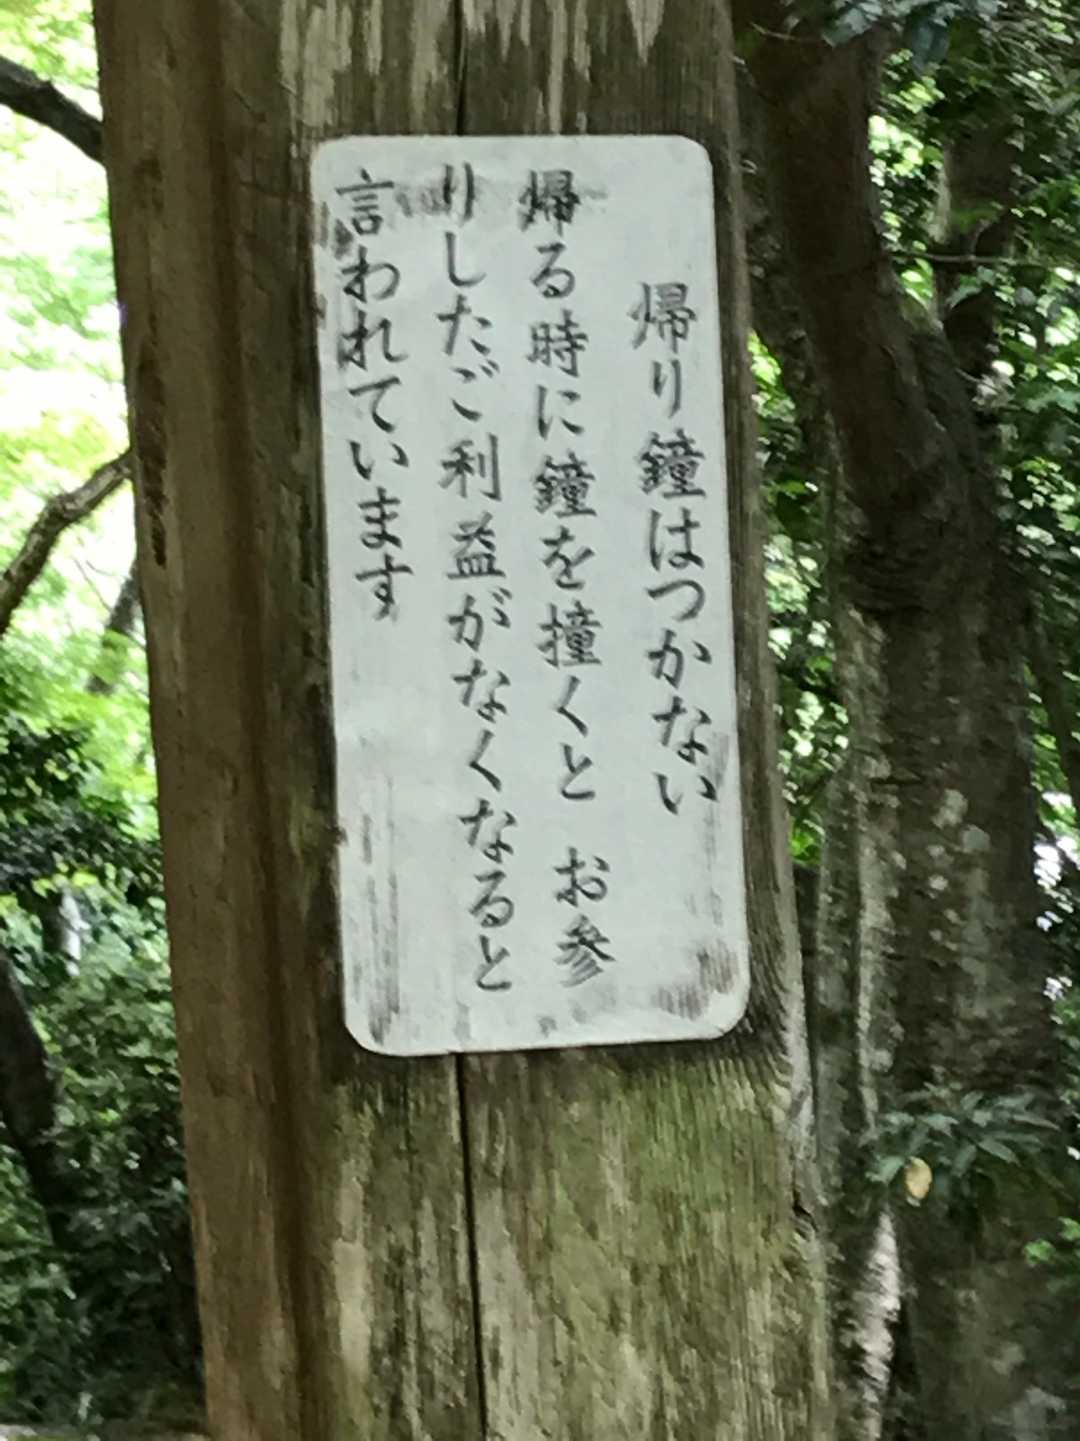 帰り鐘はつかない
帰る時に鐘を撞くと　お参
りしたご利益がなくなると
言われています